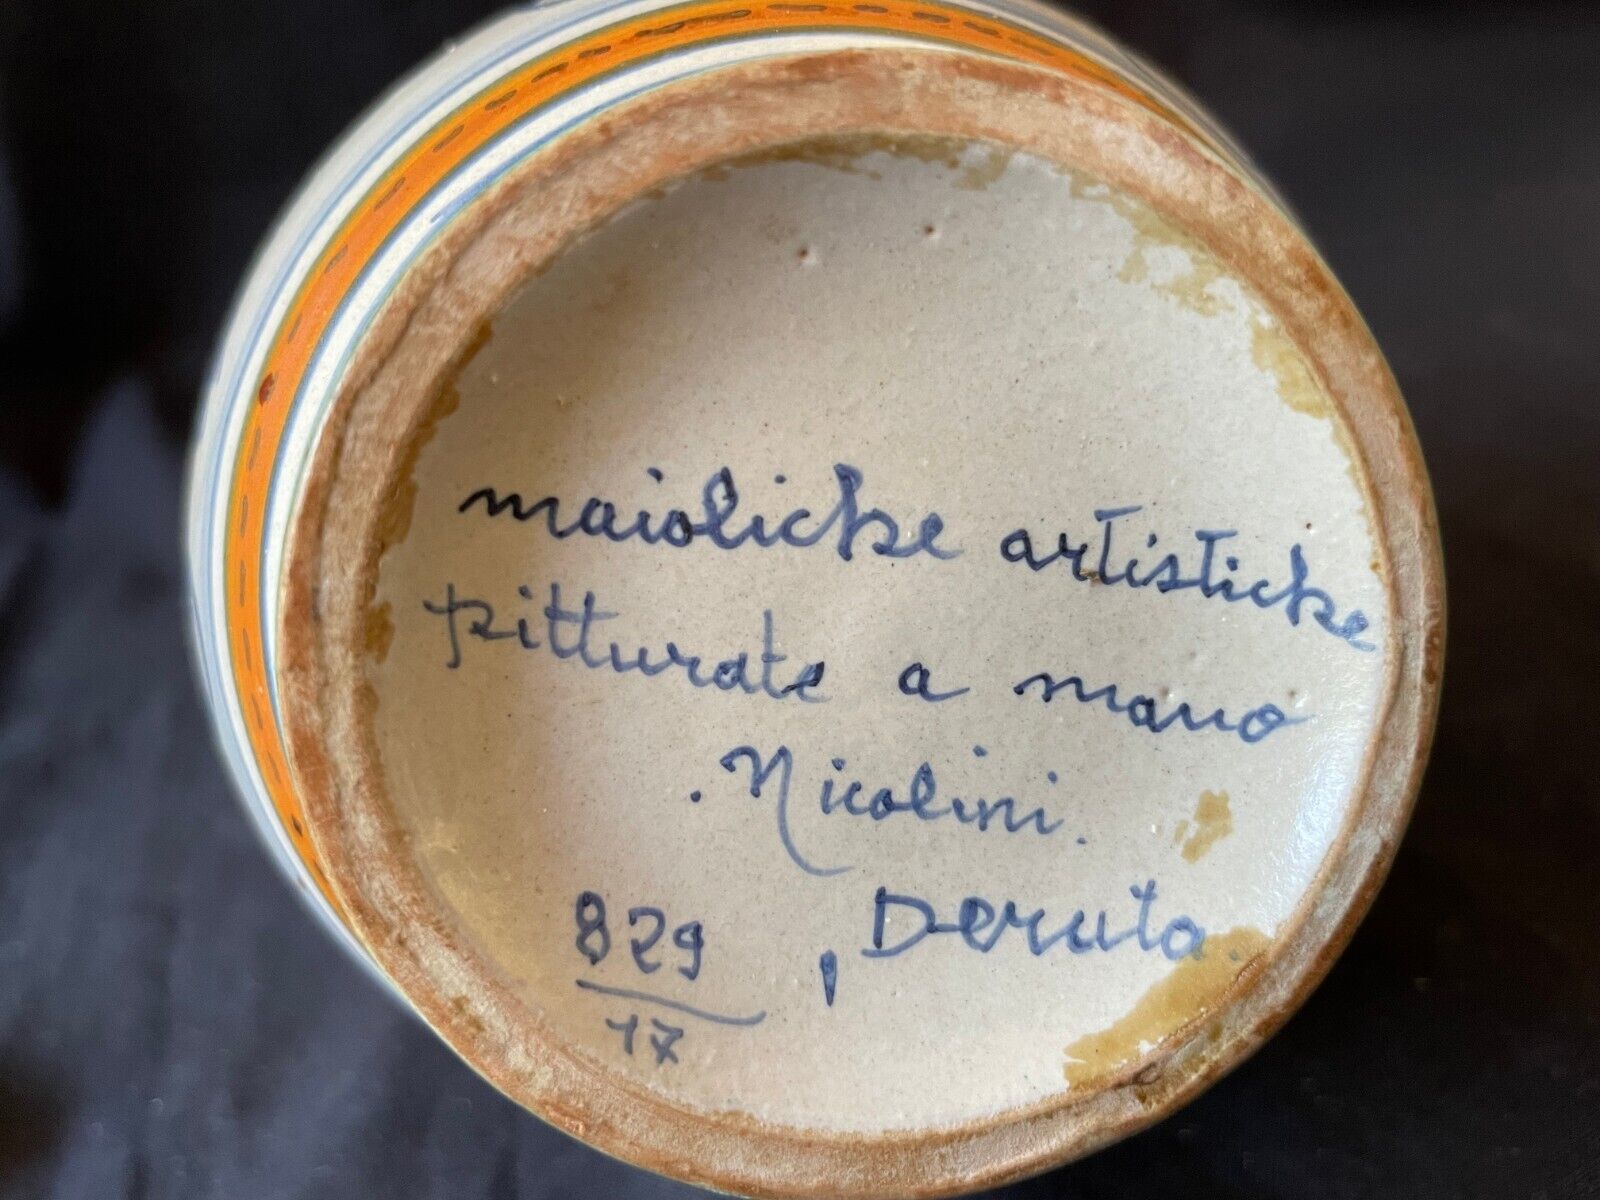 maioliche artistiche
pitturate a mano
. Nicolini.
, Deruta.
829
17